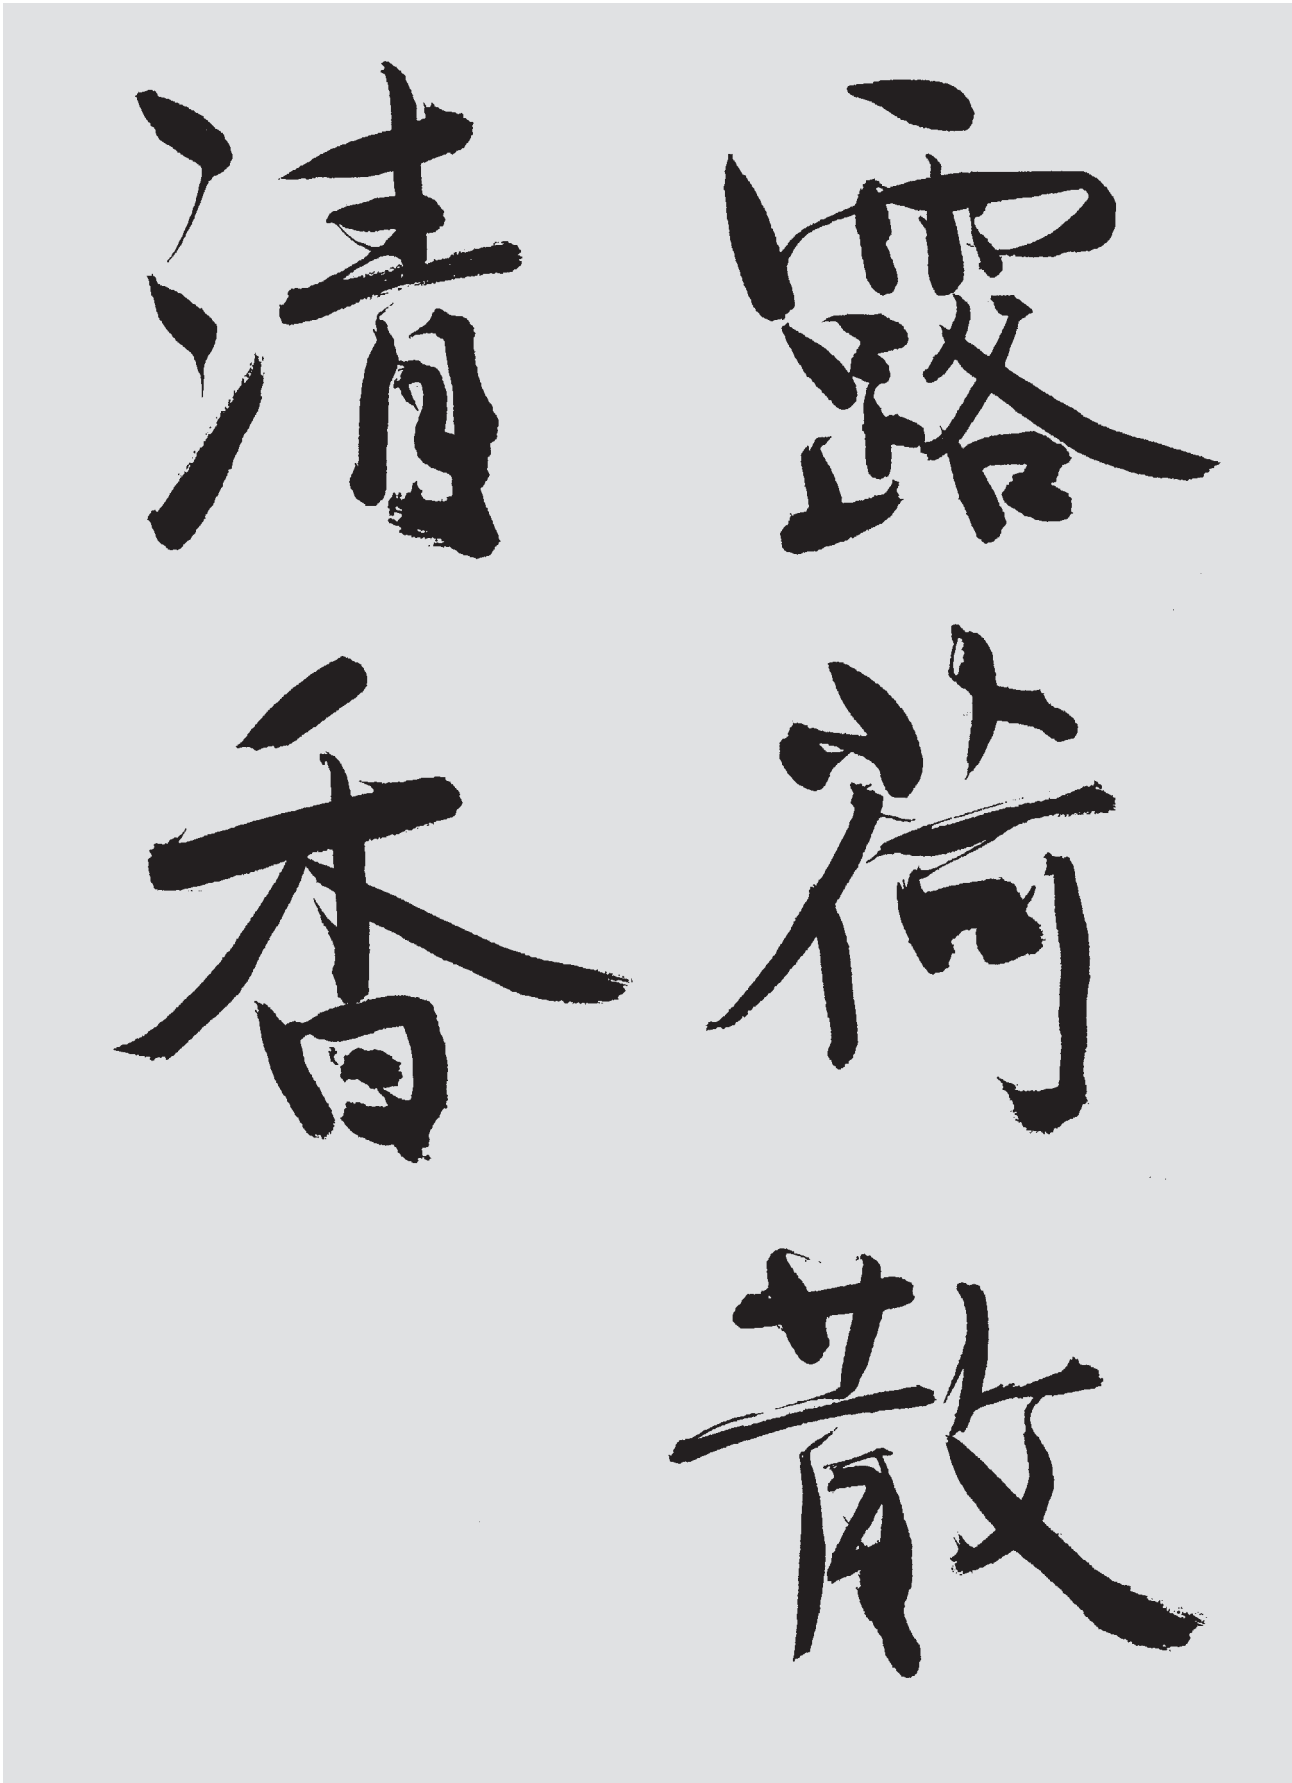 露荷散
清香